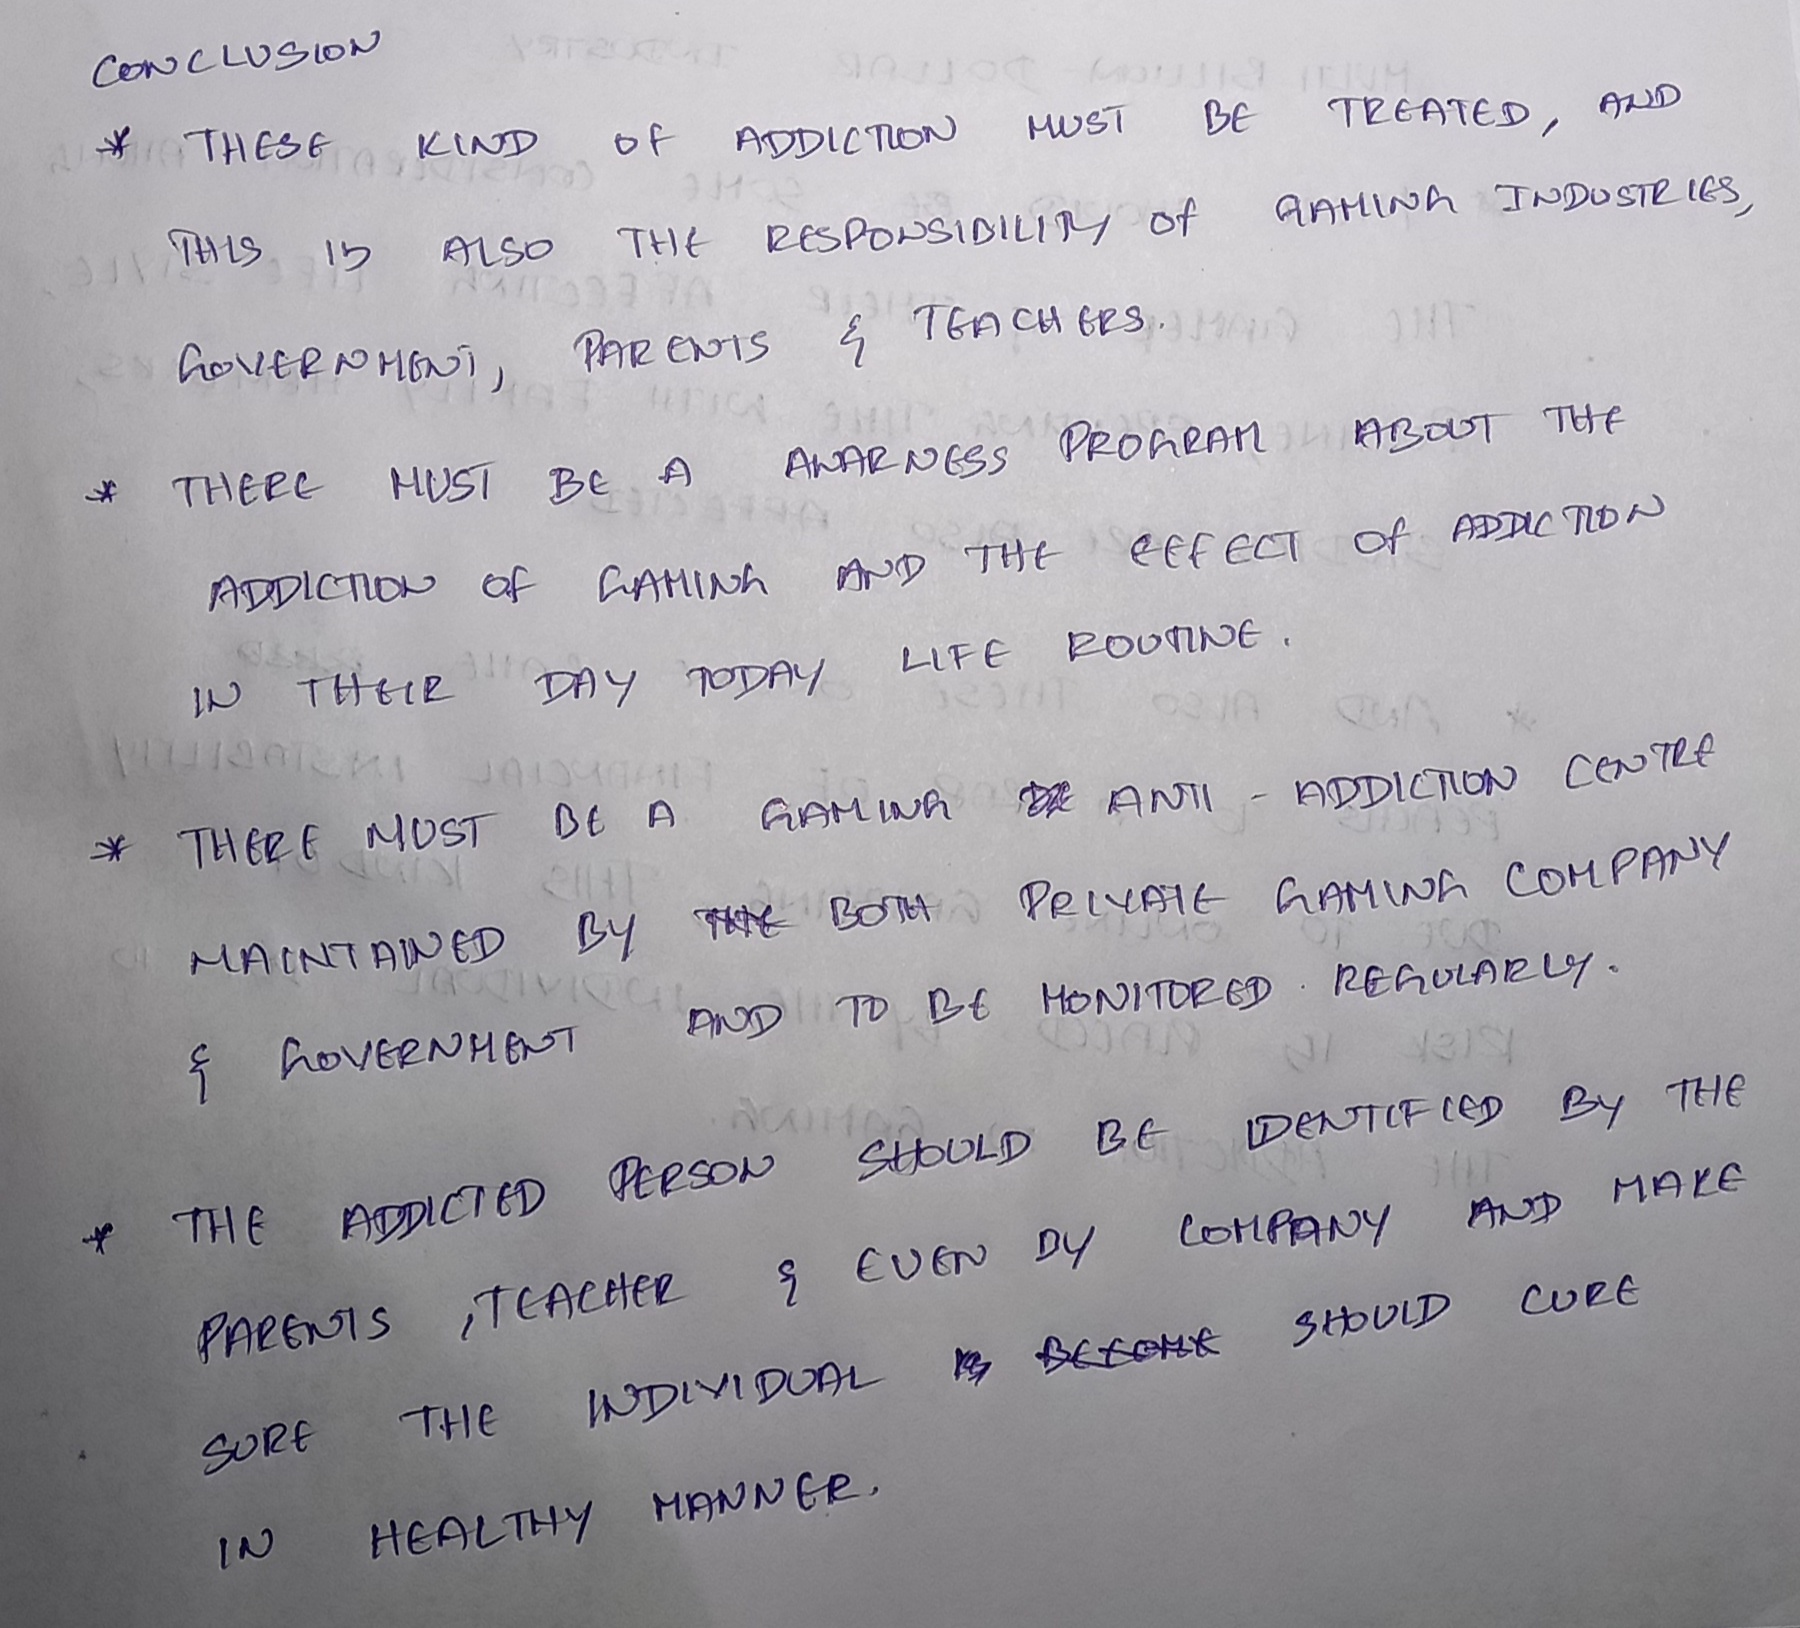 CONCLUSION
* THESE KIND OF ADDICTION MUST BE TREATED, AND
THIS IS ALSO THE RESPONSIBILITY OF GAMING INDUSTRIES,
GOVERNMENT, PARENTS & TEACHERS.
* THERE MUST BE A AWARNESS PROGRAM ABOUT THE
ADDICTION OF GAMING AND THE EFFECT OF ADDICTION
IN THEIR DAY TODAY LIFE ROUTINE.
* THERE MUST BE A GAMING ANTI - ADDICTION CENTRE
MAINTAINED BY THE BOTH PRIVATE GAMING COMPANY
& GOVERNMENT AND TO BE MONITORED. REGULARLY.
* THE ADDICTED PERSON SHOULD BE IDENTIFIED BY THE
PARENTS, TEACHER & EVEN BY COMPANY AND MAKE
SURE THE INDIVIDUAL IS BECOME SHOULD CURE
IN HEALTHY MANNER.